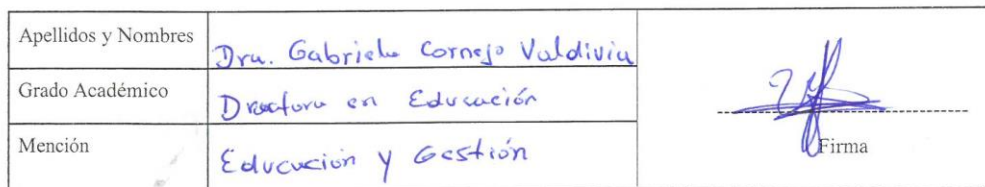 Apellidos y Nombres Dra. Gabriela Cornejo Valdivia
Grado Académico Doctora en Educación
Mención Educación y Gestión
Firma